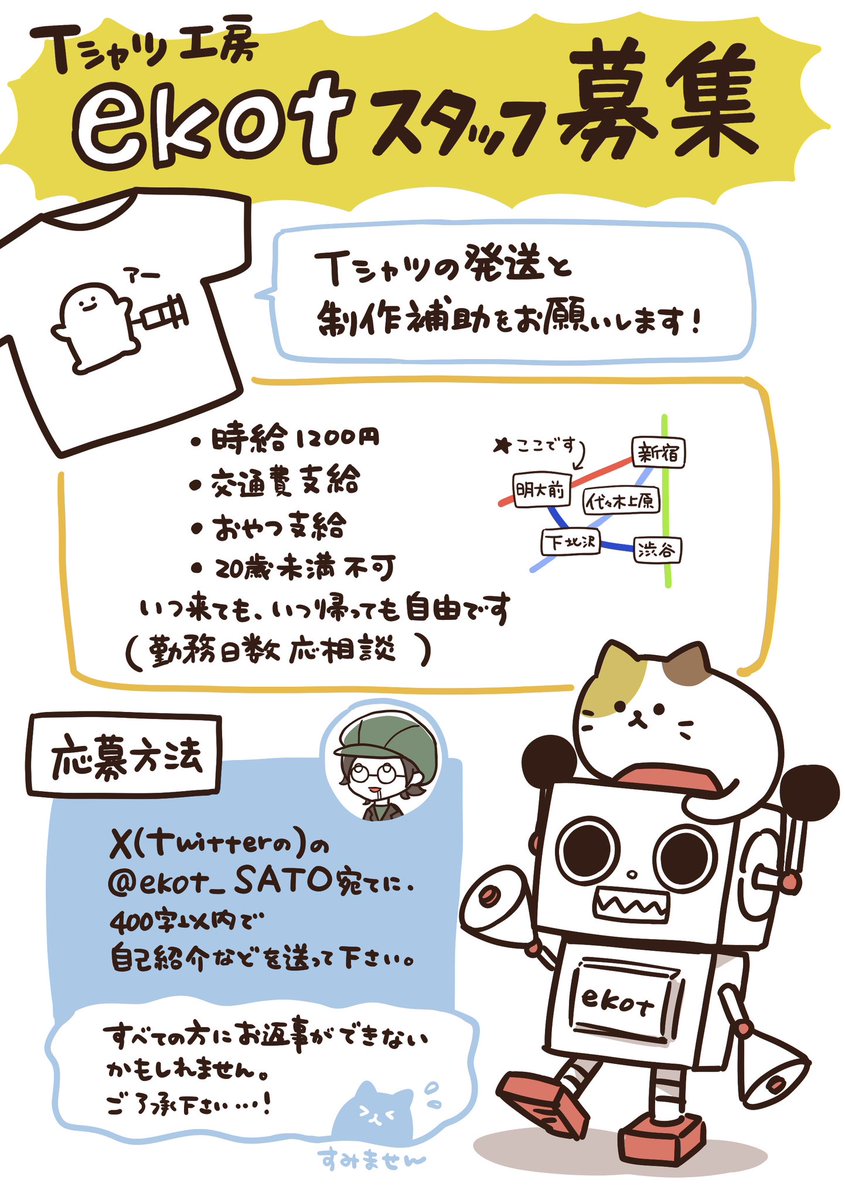 Tシャツ工房
ekotスタッフ募集
アー
Tシャツの発送と
制作補助をお願いします!
・時給1200円
・交通費支給
・おやつ支給
・20歳未満不可
いつ来ても、いつ帰っても自由です
(勤務日数応相談)
★ここです
新宿
明大前
代々木上原
下北沢
渋谷
応募方法
X(Twitterの)の
@ekot_SATO宛てに、
400字以内で
自己紹介などを送って下さい。
すべての方にお返事ができない
かもしれません。
ご了承下さい…!
すみません
ekot